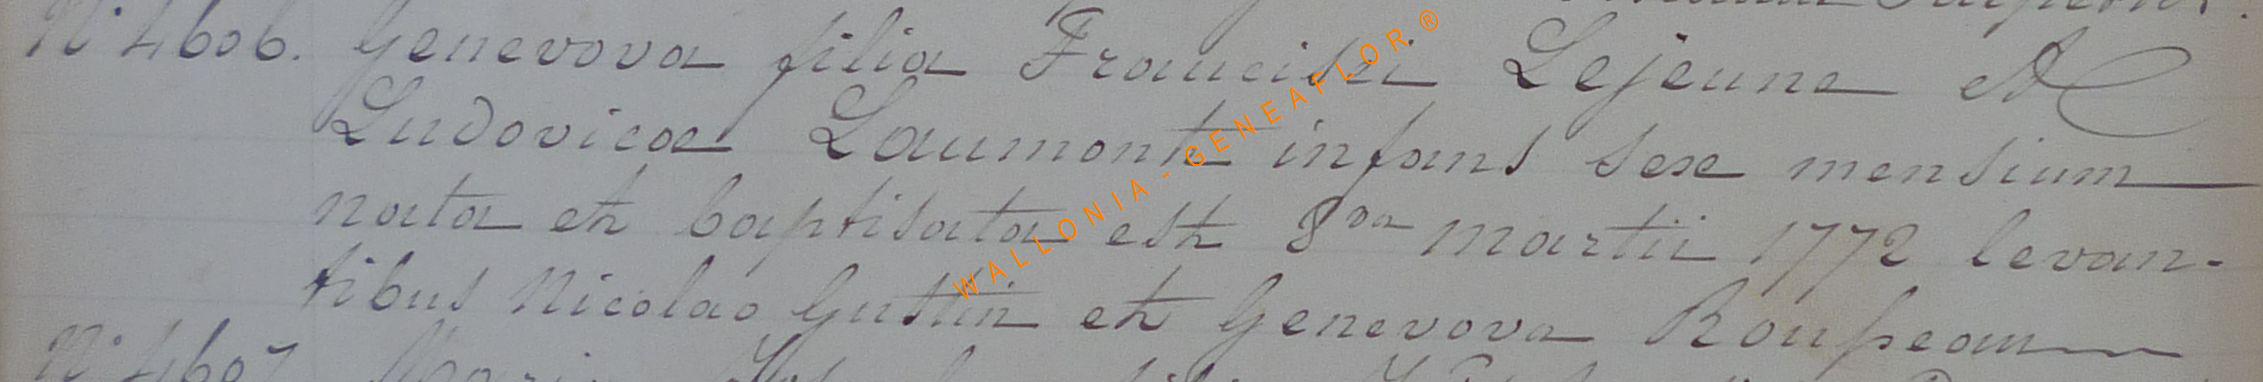 N° 4606. Genevova filia Francisci Lejeune et
Ludovicæ Laumont infans sex mensium
nata et baptisata est 8va martii 1772 levan-
tibus Nicolao Gustin et Genevova Roupeau
N° 4607
WALLONIA - GENEAFLOR ®